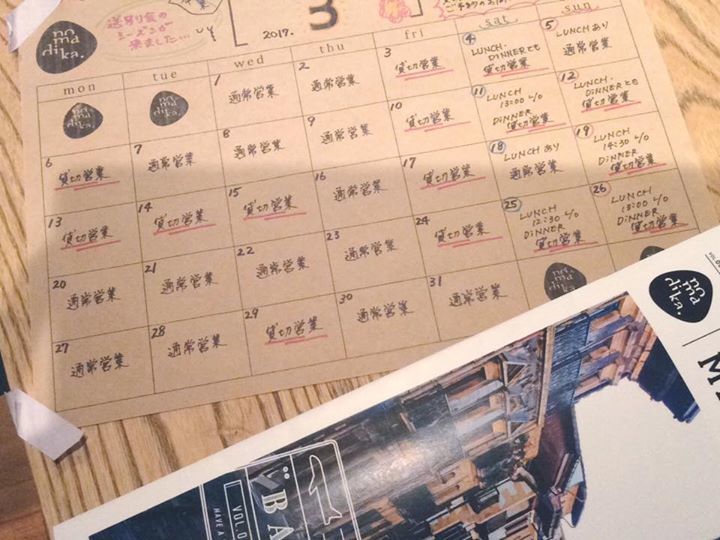 no
ma
dika.
送別会の
シーズンが
来ました...
2017.
3
mon tue wed thu fri sat sun
no
ma
dika.
no
ma
dika.
1 通常営業
2 通常営業
3 貸切営業
4 LUNCH.
DINNERとも
貸切営業
5 LUNCHあり
通常営業
6 貸切営業
7 通常営業
8 通常営業
9 通常営業
10 貸切営業
11 LUNCH
13:00 4/0
DINNER
貸切営業
12 LUNCH.
DINNERとも
貸切営業
13 貸切営業
14 貸切営業
15 貸切営業
16 通常営業
17 貸切営業
18 LUNCHあり
通常営業
19 LUNCH
14:30 4/0
DINNER
貸切営業
20 通常営業
21 通常営業
22 通常営業
23 通常営業
24 貸切営業
25 LUNCH
12:30 4/0
DINNER
貸切営業
26 LUNCH
13:00 4/0
DINNER
貸切営業
27 通常営業
28 通常営業
29 貸切営業
30 通常営業
31 通常営業
no
ma
dika.
no
ma
dika.
BA
VOL.0
HAVE A